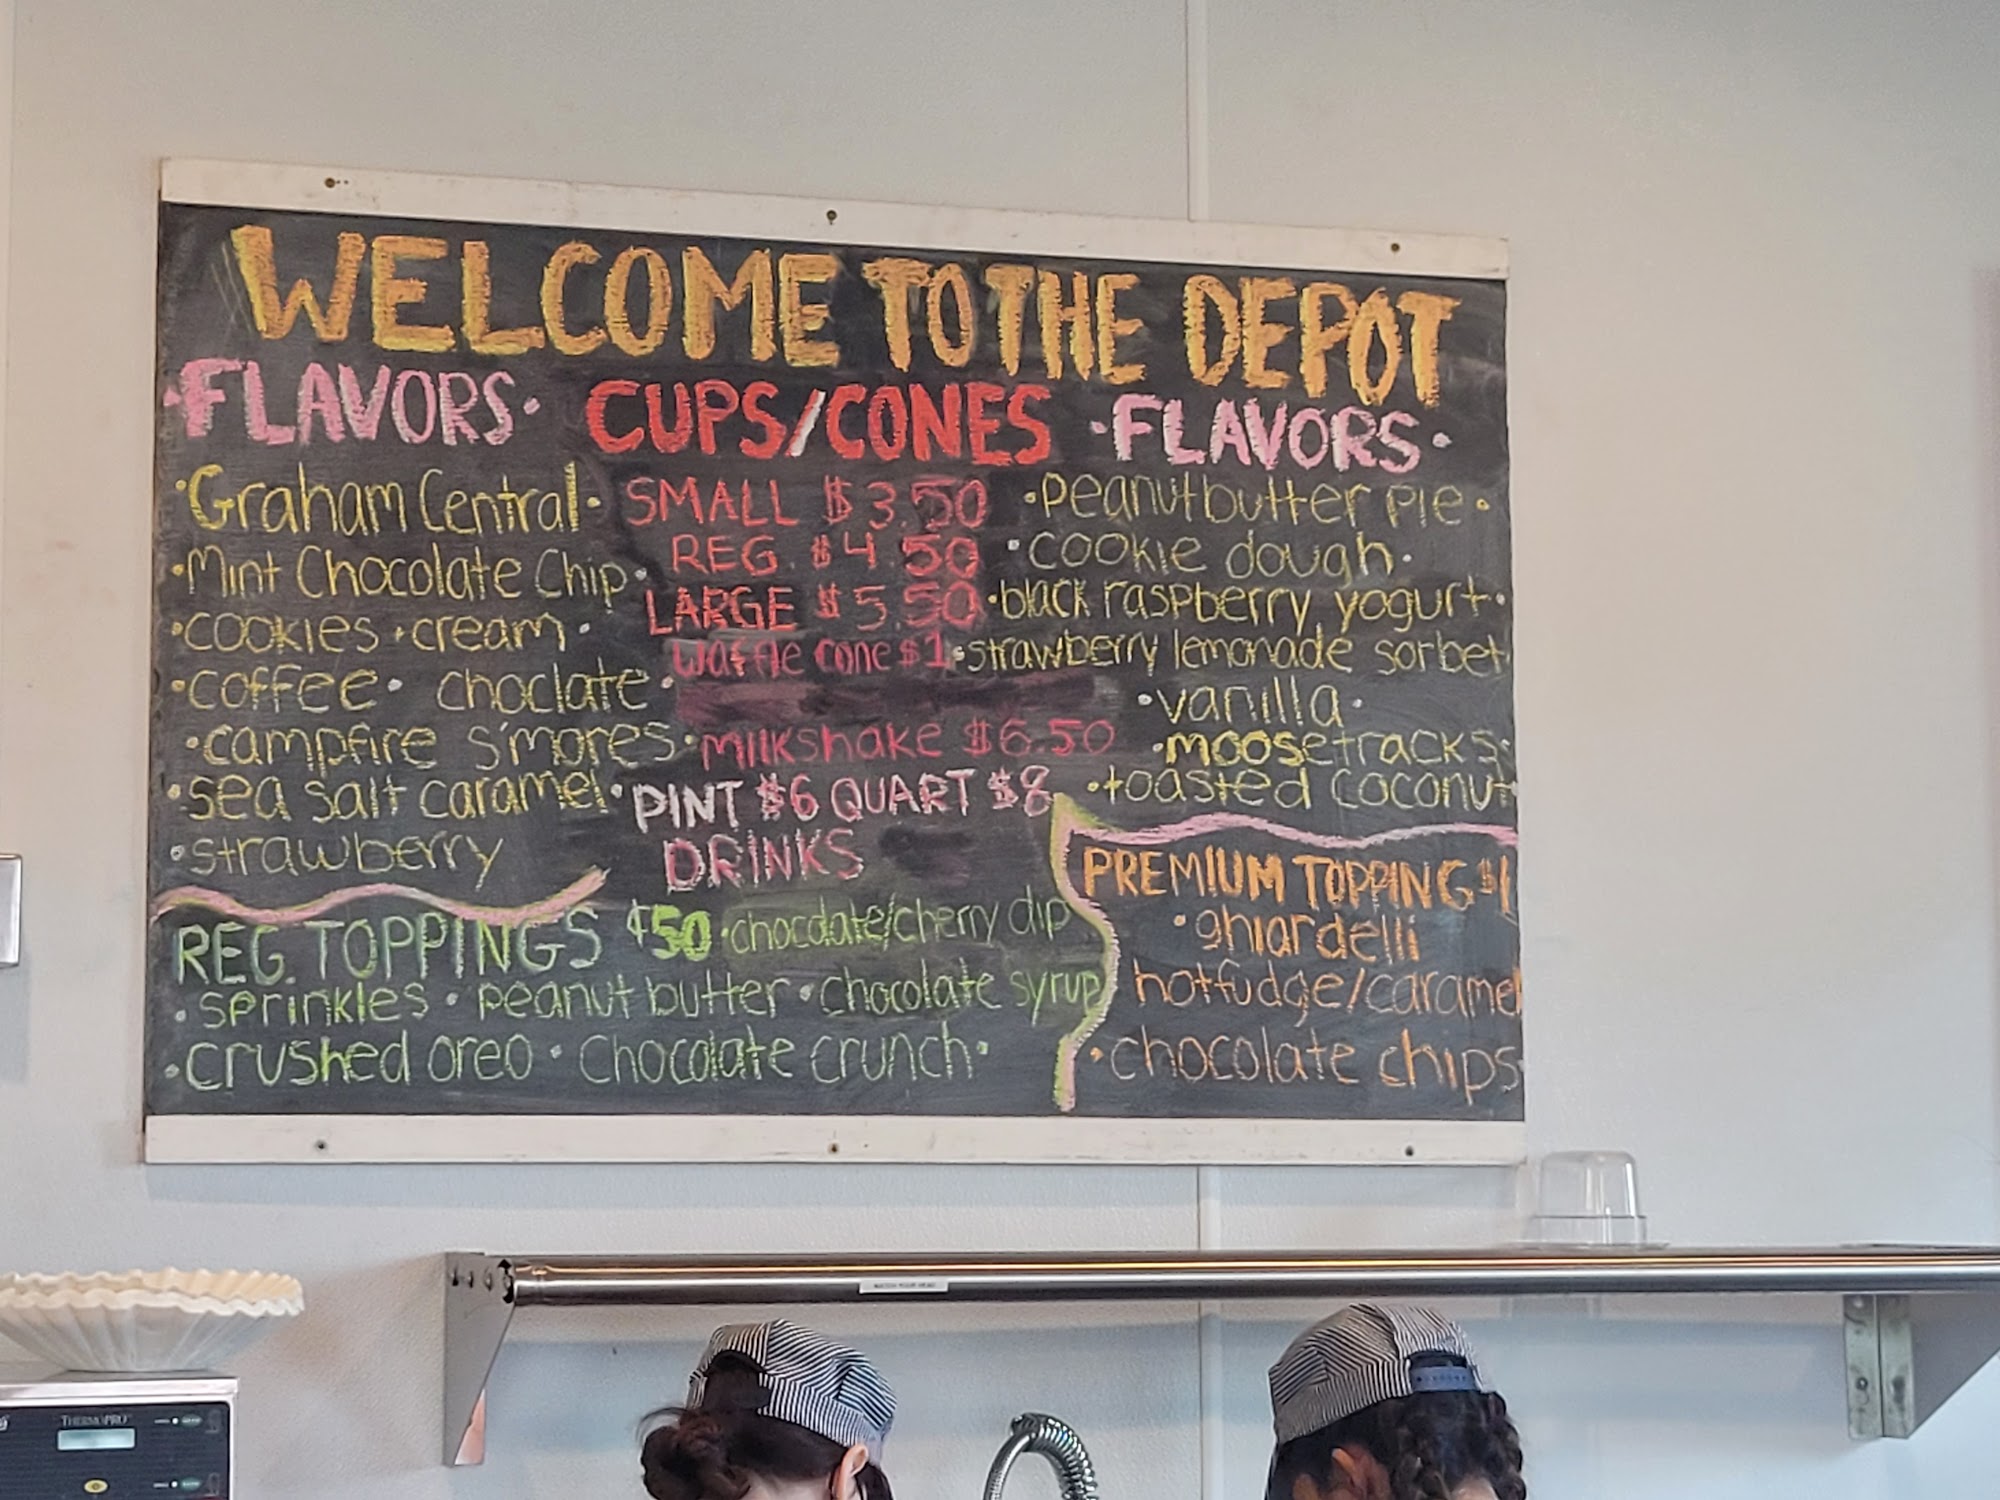 WELCOME TO THE DEPOT
·FLAVORS·
·Graham Central·
·Mint Chocolate Chip·
·cookies·cream·
·coffee· choclate·
·campfire s'mores·
·sea salt caramel·
·strawberry
CUPS/CONES
SMALL $3.50
REG. $4.50
LARGE $5.50
waffle cone $1
milkshake $6.50
PINT $6 QUART $8
DRINKS
·FLAVORS·
·peanutbutter pie·
·cookie dough·
·black raspberry yogurt·
·strawberry lemonade sorbet
·vanilla·
·moosetracks·
·toasted coconut
REG. TOPPINGS $50 ·chocolate/cherry dip
·sprinkles·peanut butter·chocolate syrup
·crushed oreo·chocolate crunch·
PREMIUM TOPPING $1
·ghiardelli
hotfudge/caramel
·chocolate chips·
WATCH YOUR HEAD
THERMOPRO